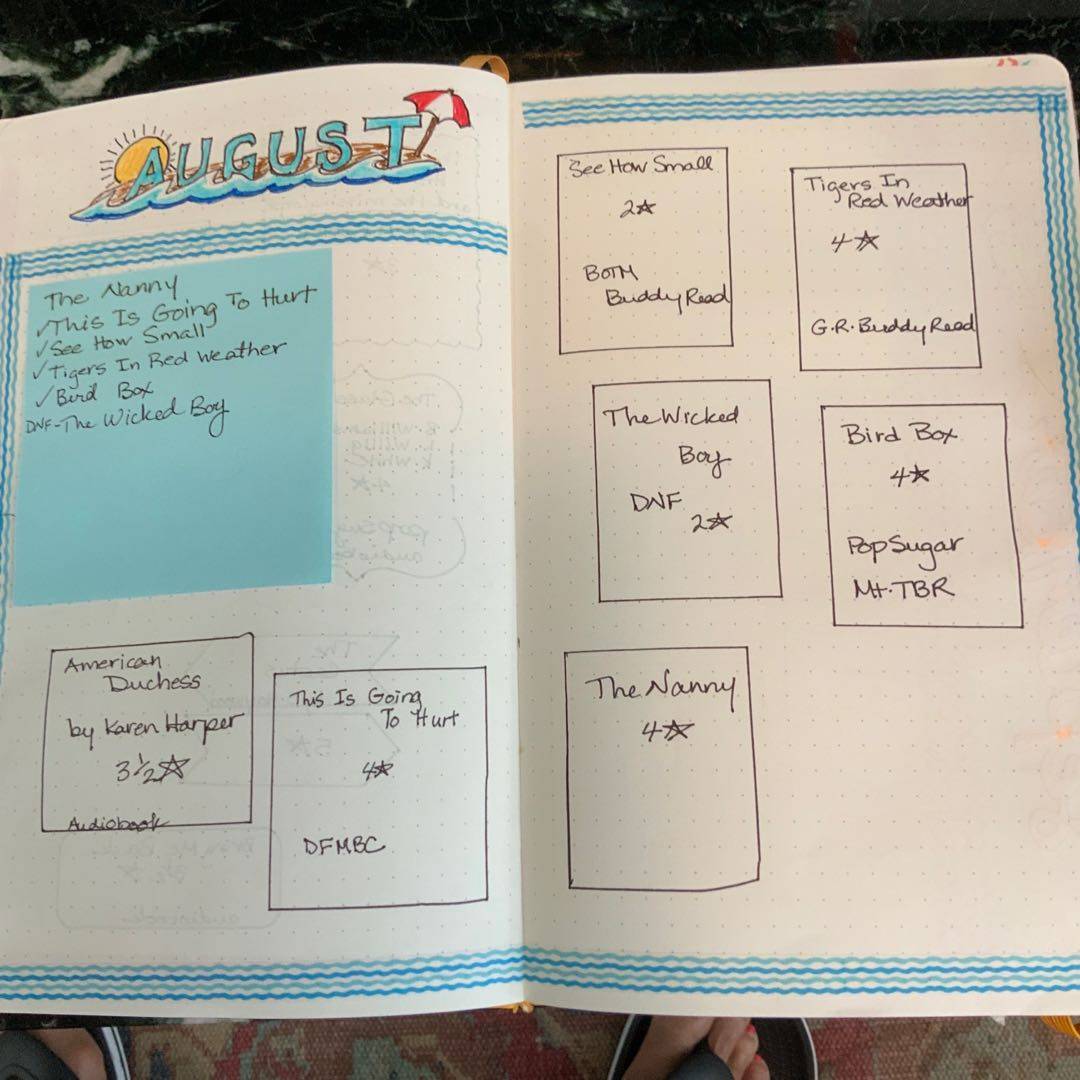 AUGUST
The Nanny
✓This Is Going To Hurt
✓See How Small
✓Tigers In Red Weather
✓Bird Box
DNF-The Wicked Boy
American
Duchess
by Karen Harper
3 1/2☆
Audiobook
This Is Going
To Hurt
4☆
DFMBC
See How Small
2☆
BOTM
Buddy Read
Tigers In
Red Weather
4☆
G.R. Buddy Read
The Wicked
Boy
DNF
2☆
Bird Box
4☆
PopSugar
Mt. TBR
The Nanny
4☆